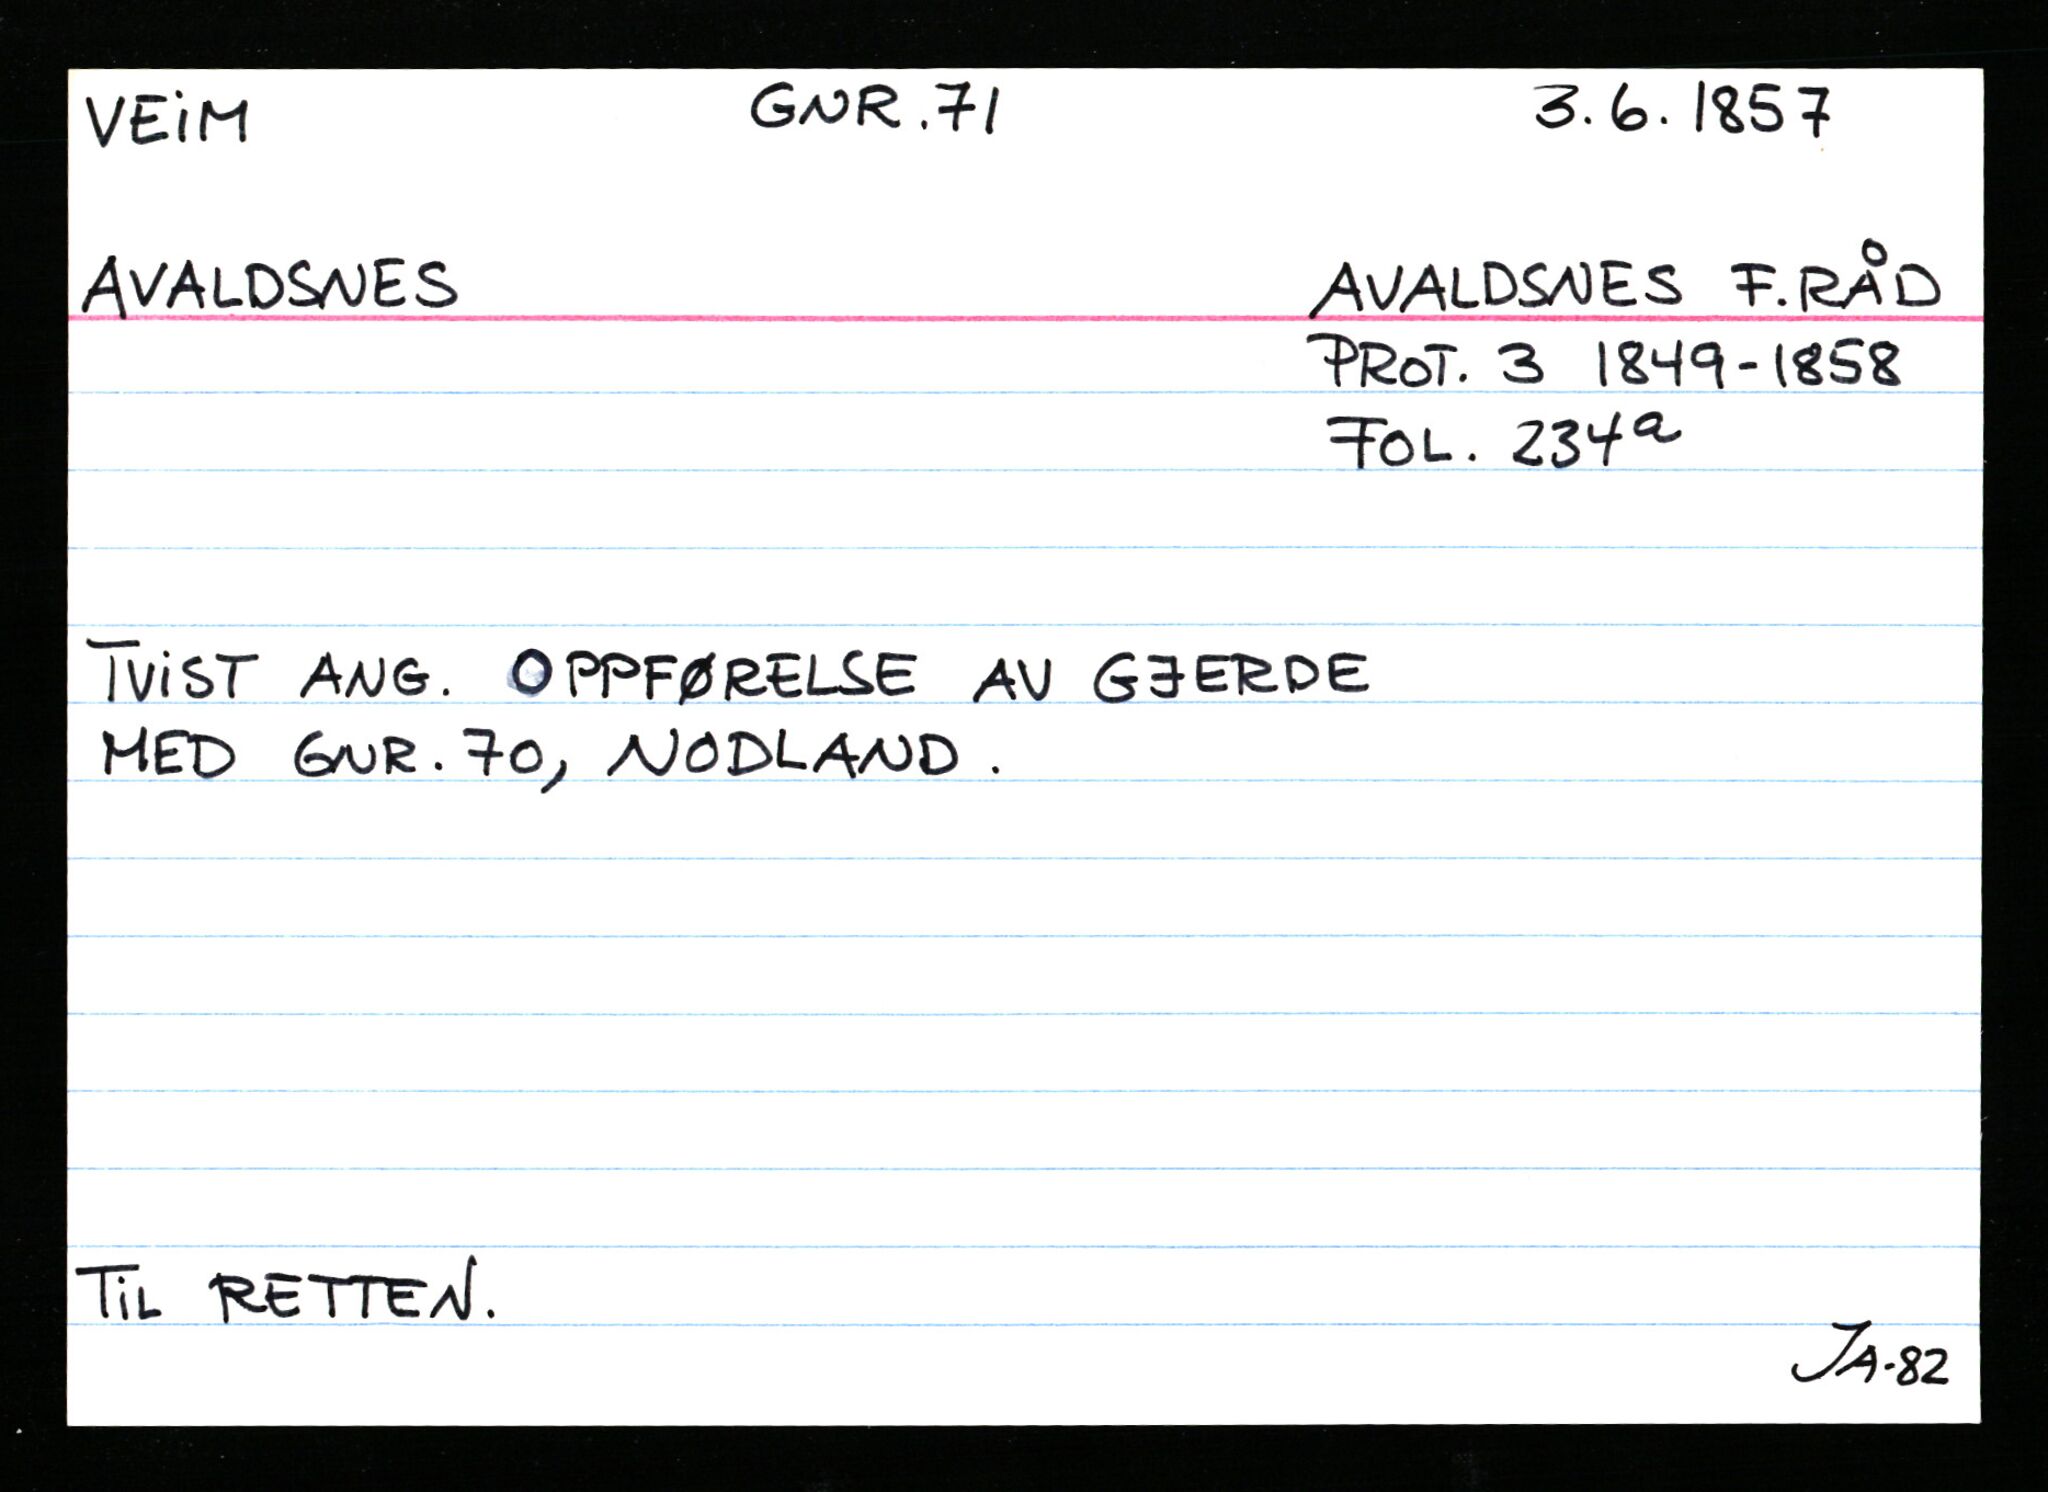 VEIM GNR. 71 3.6.1857
AVALDSNES AVALDSNES F.RÅD
PROT. 3 1849-1858
FOL. 234a
TVIST ANG. OPPFØRELSE AV GJERDE
MED GNR. 70, NODLAND.
TIL RETTEN.
JA-82